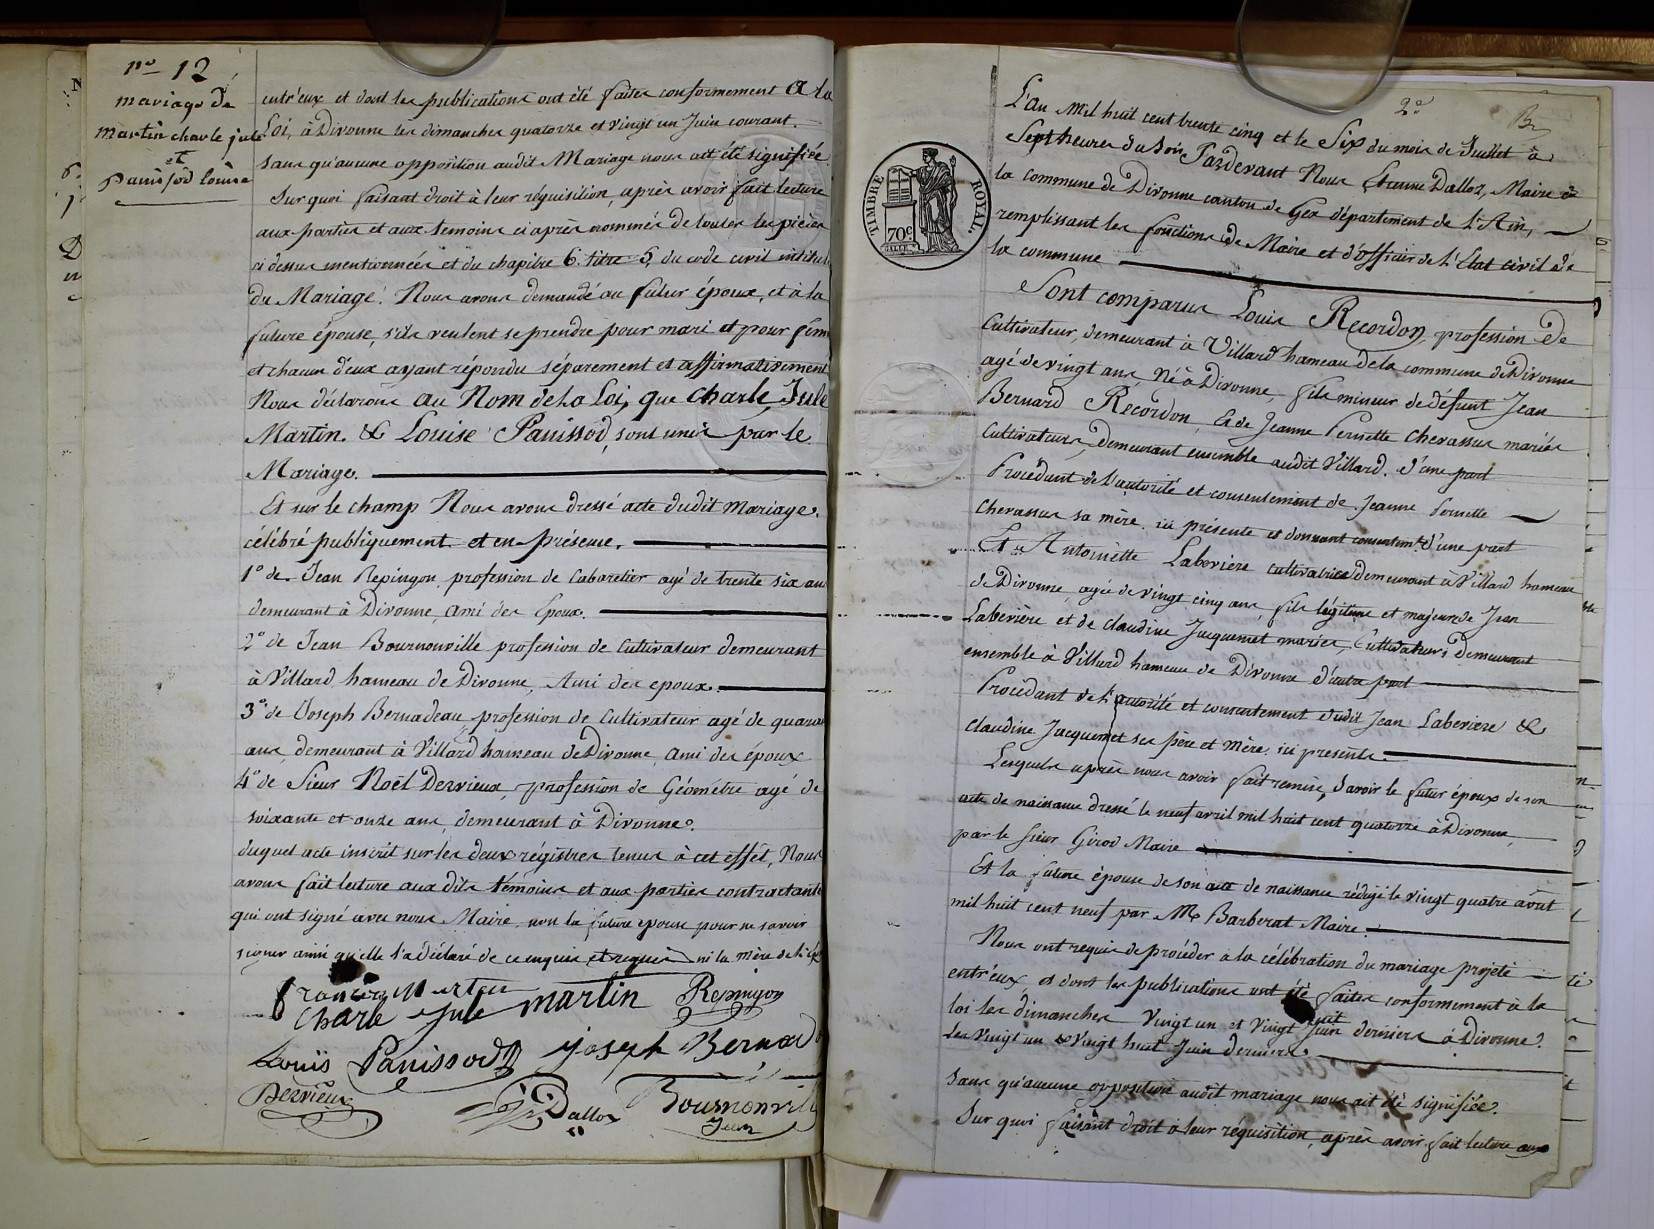 n.o 12
mariage de
Martin charle jule
et
Panissod louise
entr'eux et dont les publications ont été faites conformement a la
Loi, à Divonne les dimanches quatorze et vingt un Juin courant.
sans qu'aucune opposition audit Mariage nous ait été signifiée
Sur quoi faisant droit à leur réquisition, après avoir fait lecture
aux parties et aux temoins ci après nommés de toutes les pièces
ci dessus mentionnées et du chapitre 6. titre 5, du code civil intitulé
du Mariage. Nous avons demandé au futur époux, et à la
future épouse, s'ils veulent se prendre pour mari et pour fem
et chacun d'eux ayant répondu séparement et affirmativement
Nous déclarons au Nom de la Loi, que Charle, Jule
Martin. & Louise Panissod, sont unis par le
Mariage.
Et sur le champ Nous avons dressé acte dudit mariage.
célébré publiquement et en présence.
1.o de Jean Repingon, profession de Cabaretier agé de trente six ans
demeurant à Divonne, ami des Epoux.
2.o de Jean Bournonville profession de Cultivateur demeurant
à Villard hameau de Divonne, Ami des epoux.
3.o de Joseph Bernadeau profession de Cultivateur agé de quaran
ans, demeurant à Villard hameau de Divonne ami des époux
4.o de Sieur Noël Dervieux, profession de Géométre agé de
soixante et onze ans, demeurant à Divonne.
duquel acte inscrit sur les deux régistres tenus à cet effet, Nous
avons fait lecture aux dits témoins et aux parties contractante
qui ont signé avec nous Maire, non la future epouse pour ne savoir
signer ainsi qu'elle l'a déclaré de ce enquise et requise ni la mère de l'ép
Charle Jule martin Repingon
Louis Panissod Joseph Bernad
Dervieux Dalloz Bournonville
Jean
2.o
TIMBRE ROYAL.
70c
L'an mil huit cent trente cinq et le Six du mois de Juillet à
Sept heures du Soir Pardevant Nous Etienne Dalloz, Maire de
la commune de Divonne canton de Gex département de l'Ain,
remplissant les fonctions de Maire et d'officier de l'Etat civil de
la commune
Sont comparus Louis Recordon, profession de
Cultivateur, demeurant à Villard hameau de la commune de Divonne
agé de vingt ans Né à Divonne, fils mineur de défunt Jean
Bernard Recordon, & de Jeanne Pernette Chevassus mariés
Cultivateurs, demeurant ensemble audit Villard. d'une part
Procédant de l'autorité et consentement de Jeanne Pernette
Chevassus sa mère ici présente et donnant consentemt. d'une part
Et Antoinette Laberiere cultivatrice demeurant à Villard hameau
de Divonne agée de vingt cinq ans, fils légitime et majeure de Jean
Laberière et de Claudine Jacquemet mariés, Cultivateurs demeurant
ensemble à Villard hameau de Divonne d'autre part
Procédant de l'autorité et consentement dudit Jean Laberiere &
Claudine Jacquemet ses père et mère ici présents
Lesquels après nous avoir fait remise, Savoir le futur époux de son
acte de naissance dressé le neuf avril mil huit cent quatorze à Divonne,
par le Sieur Girod Maire
Et la future épouse de son acte de naissance rédigé le vingt quatre avût
mil huit cent neuf par Mr Barberat Maire.
Nous ont requis de procéder à la célébration du mariage projeté
entr'eux, et dont les publications ont été faites conformement à la
loi les dimanches vingt un et vingt huit Juin derniers à Divonne.
les vingt un & vingt huit Juin derniers.
Sans qu'aucune opposition audit mariage nous ait été signifiée.
Sur quoi faisant droit à leur réquisition, après avoir fait lecture aux